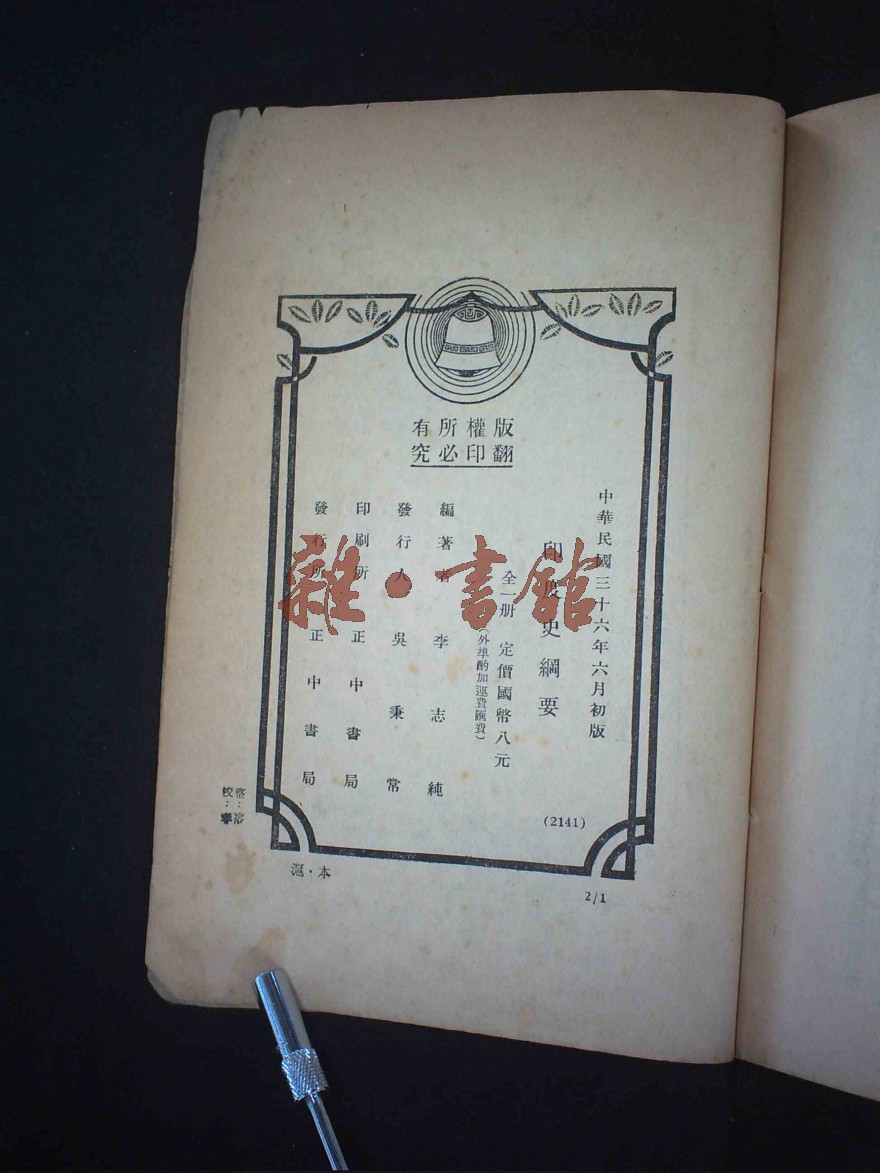 版權所有
翻印必究
中華民國三十六年六月初版
印度史綱要
全一册 定價國幣八元
(外埠酌加運費匯費)
編著者 李志純
發行人 吳秉常
印刷所 正中書局
發行所 正中書局
(2141)
校:
滬·本
2/1
雜·書館